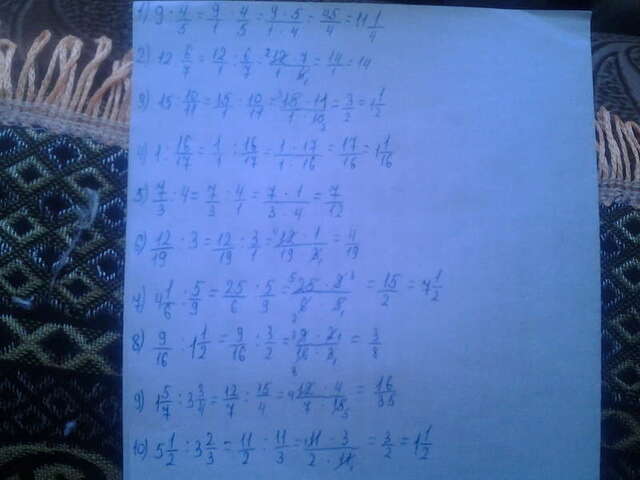 1) 9 : 4/5 = 9/1 : 4/5 = 9 · 5/1 · 4 = 45/4 = 11 1/4
2) 12 : 6/7 = 12/1 : 6/7 = 12 · 7/1 · 6 = 14/1 = 14
3) 15 : 10/11 = 15/1 : 10/11 = 15 · 11/1 · 10 = 3/2 = 1 1/2
4) 1 : 16/17 = 1/1 : 16/17 = 1 · 17/1 · 16 = 17/16 = 1 1/16
5) 7/3 : 4 = 7/3 : 4/1 = 7 · 1/3 · 4 = 7/12
6) 12/19 : 3 = 12/19 : 3/1 = 12 · 1/19 · 3 = 4/19
7) 4 1/6 : 5/9 = 25/6 : 5/9 = 25 · 9/6 · 5 = 15/2 = 7 1/2
8) 9/16 : 1 1/2 = 9/16 : 3/2 = 9 · 2/16 · 3 = 3/8
9) 1 5/7 : 3 3/4 = 12/7 : 15/4 = 12 · 4/7 · 15 = 16/35
10) 5 1/2 : 3 2/3 = 11/2 : 11/3 = 11 · 3/2 · 11 = 3/2 = 1 1/2